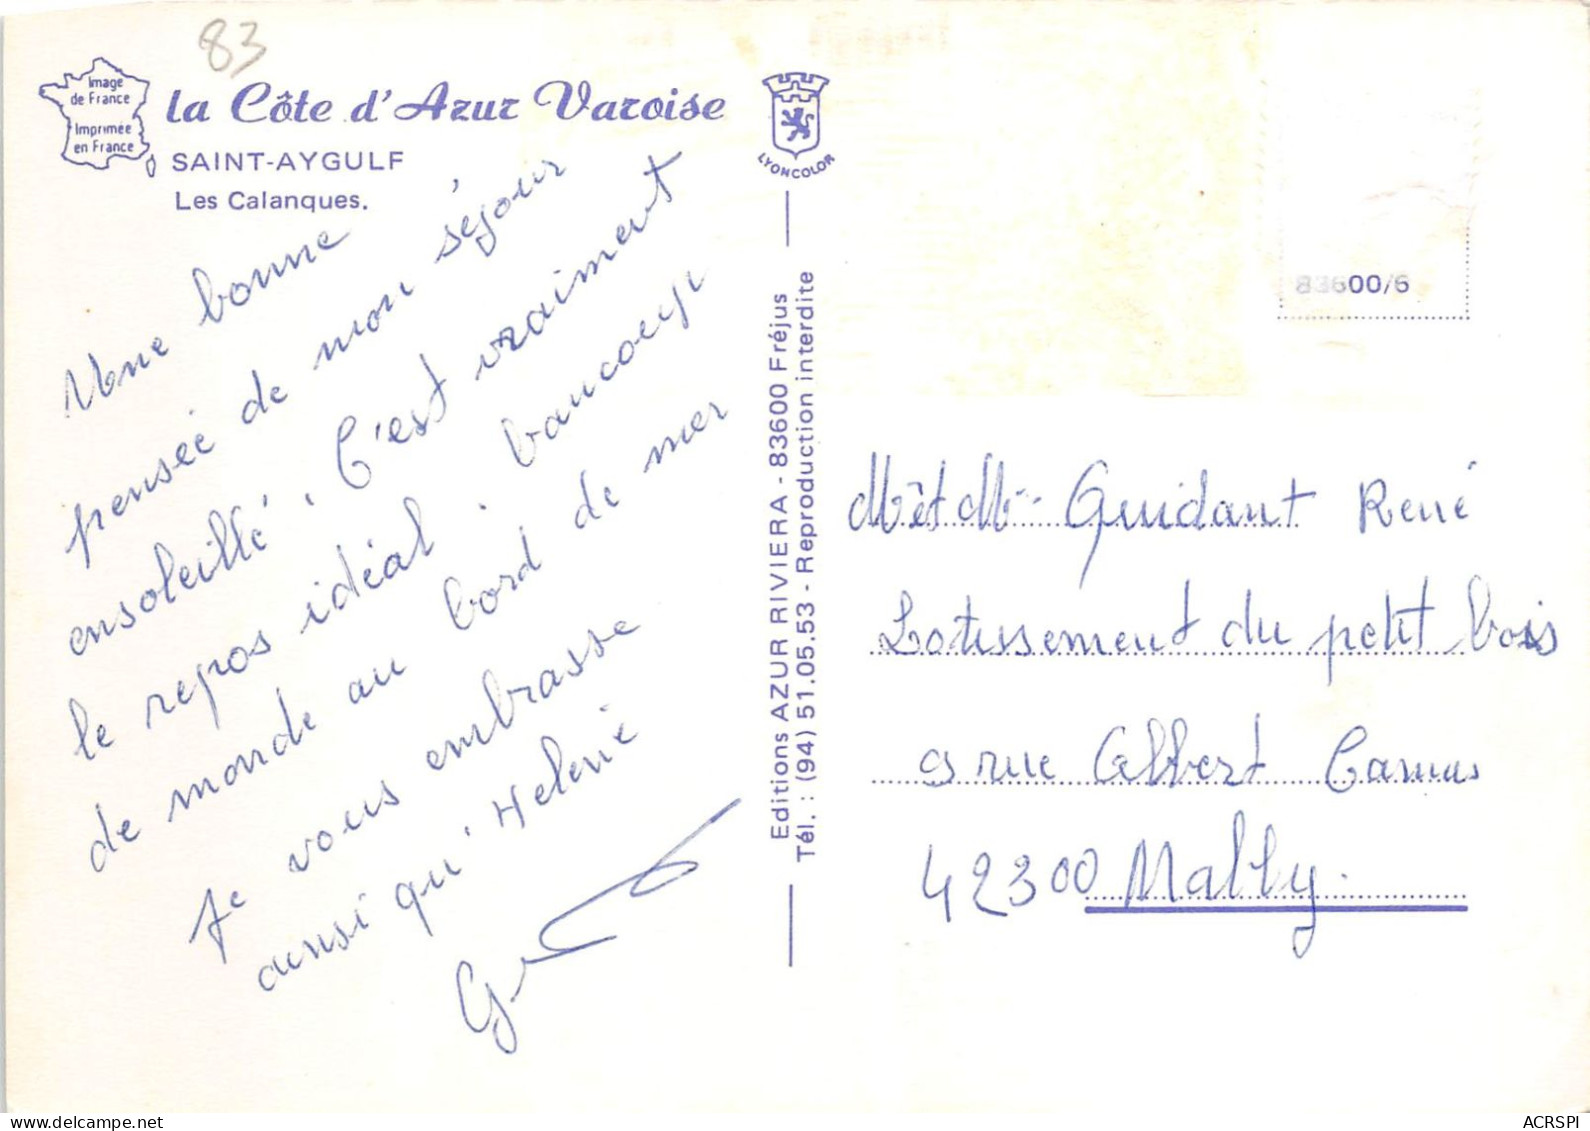 83
Image
de France
Imprimée
en France
la Côte d'Azur Varoise
SAINT-AYGULF
Les Calanques.
LYONCOLOR
Une bonne
pensée de mon séjour
ensoleillé. C'est vraiment
le repos idéal. baucoup
de monde au bord de mer
Je vous embrasse
ainsi qu'Helené
Editions AZUR RIVIERA - 83600 Fréjus
Tél. : (94) 51.05.53 - Reproduction interdite
83600/6
Mr et Mme Guidant René
Lotissement du petit bois
9 rue Albert Camus
42300 Mably.
delcampe.net
ACRSPI